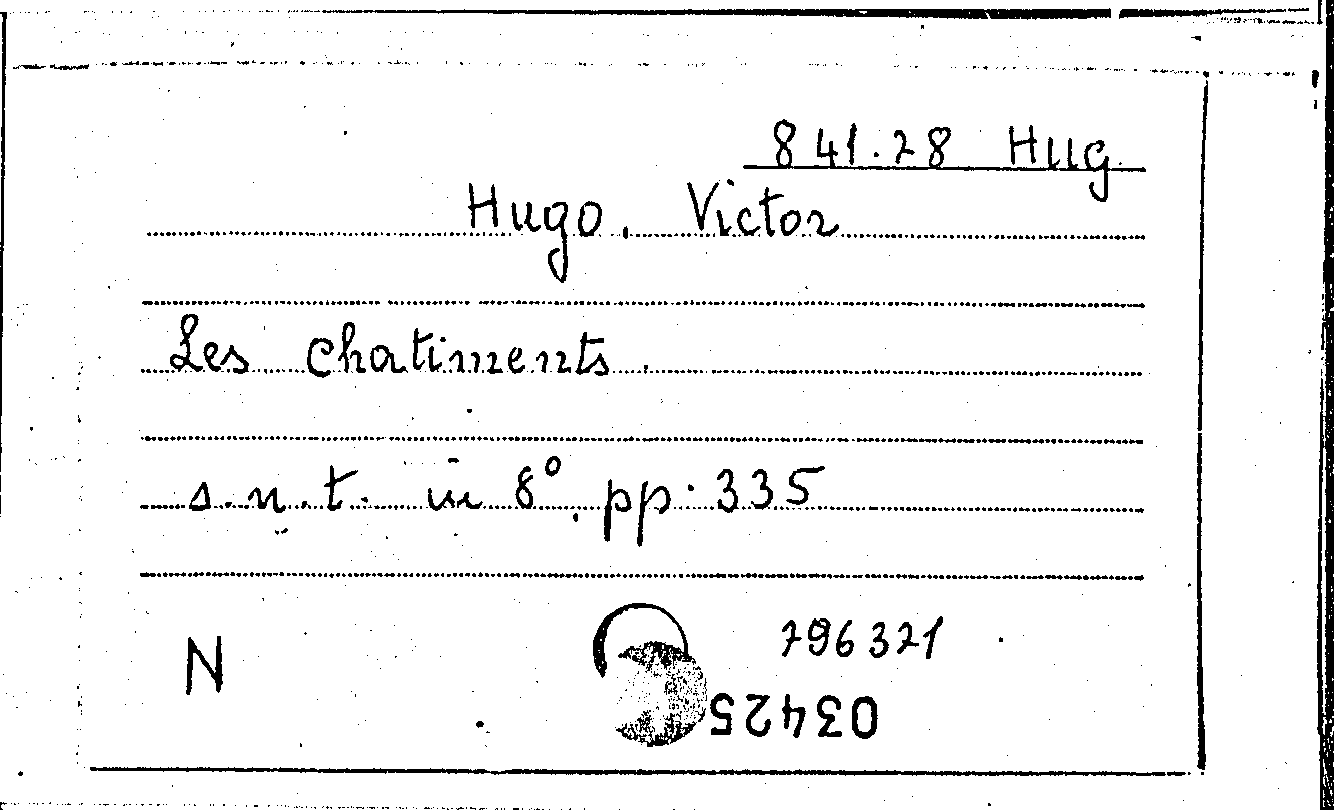 841.28 Hug.
Hugo, Victor
Les chatiments.
s.n.t. in 8°, pp. 335
N
296321
03425